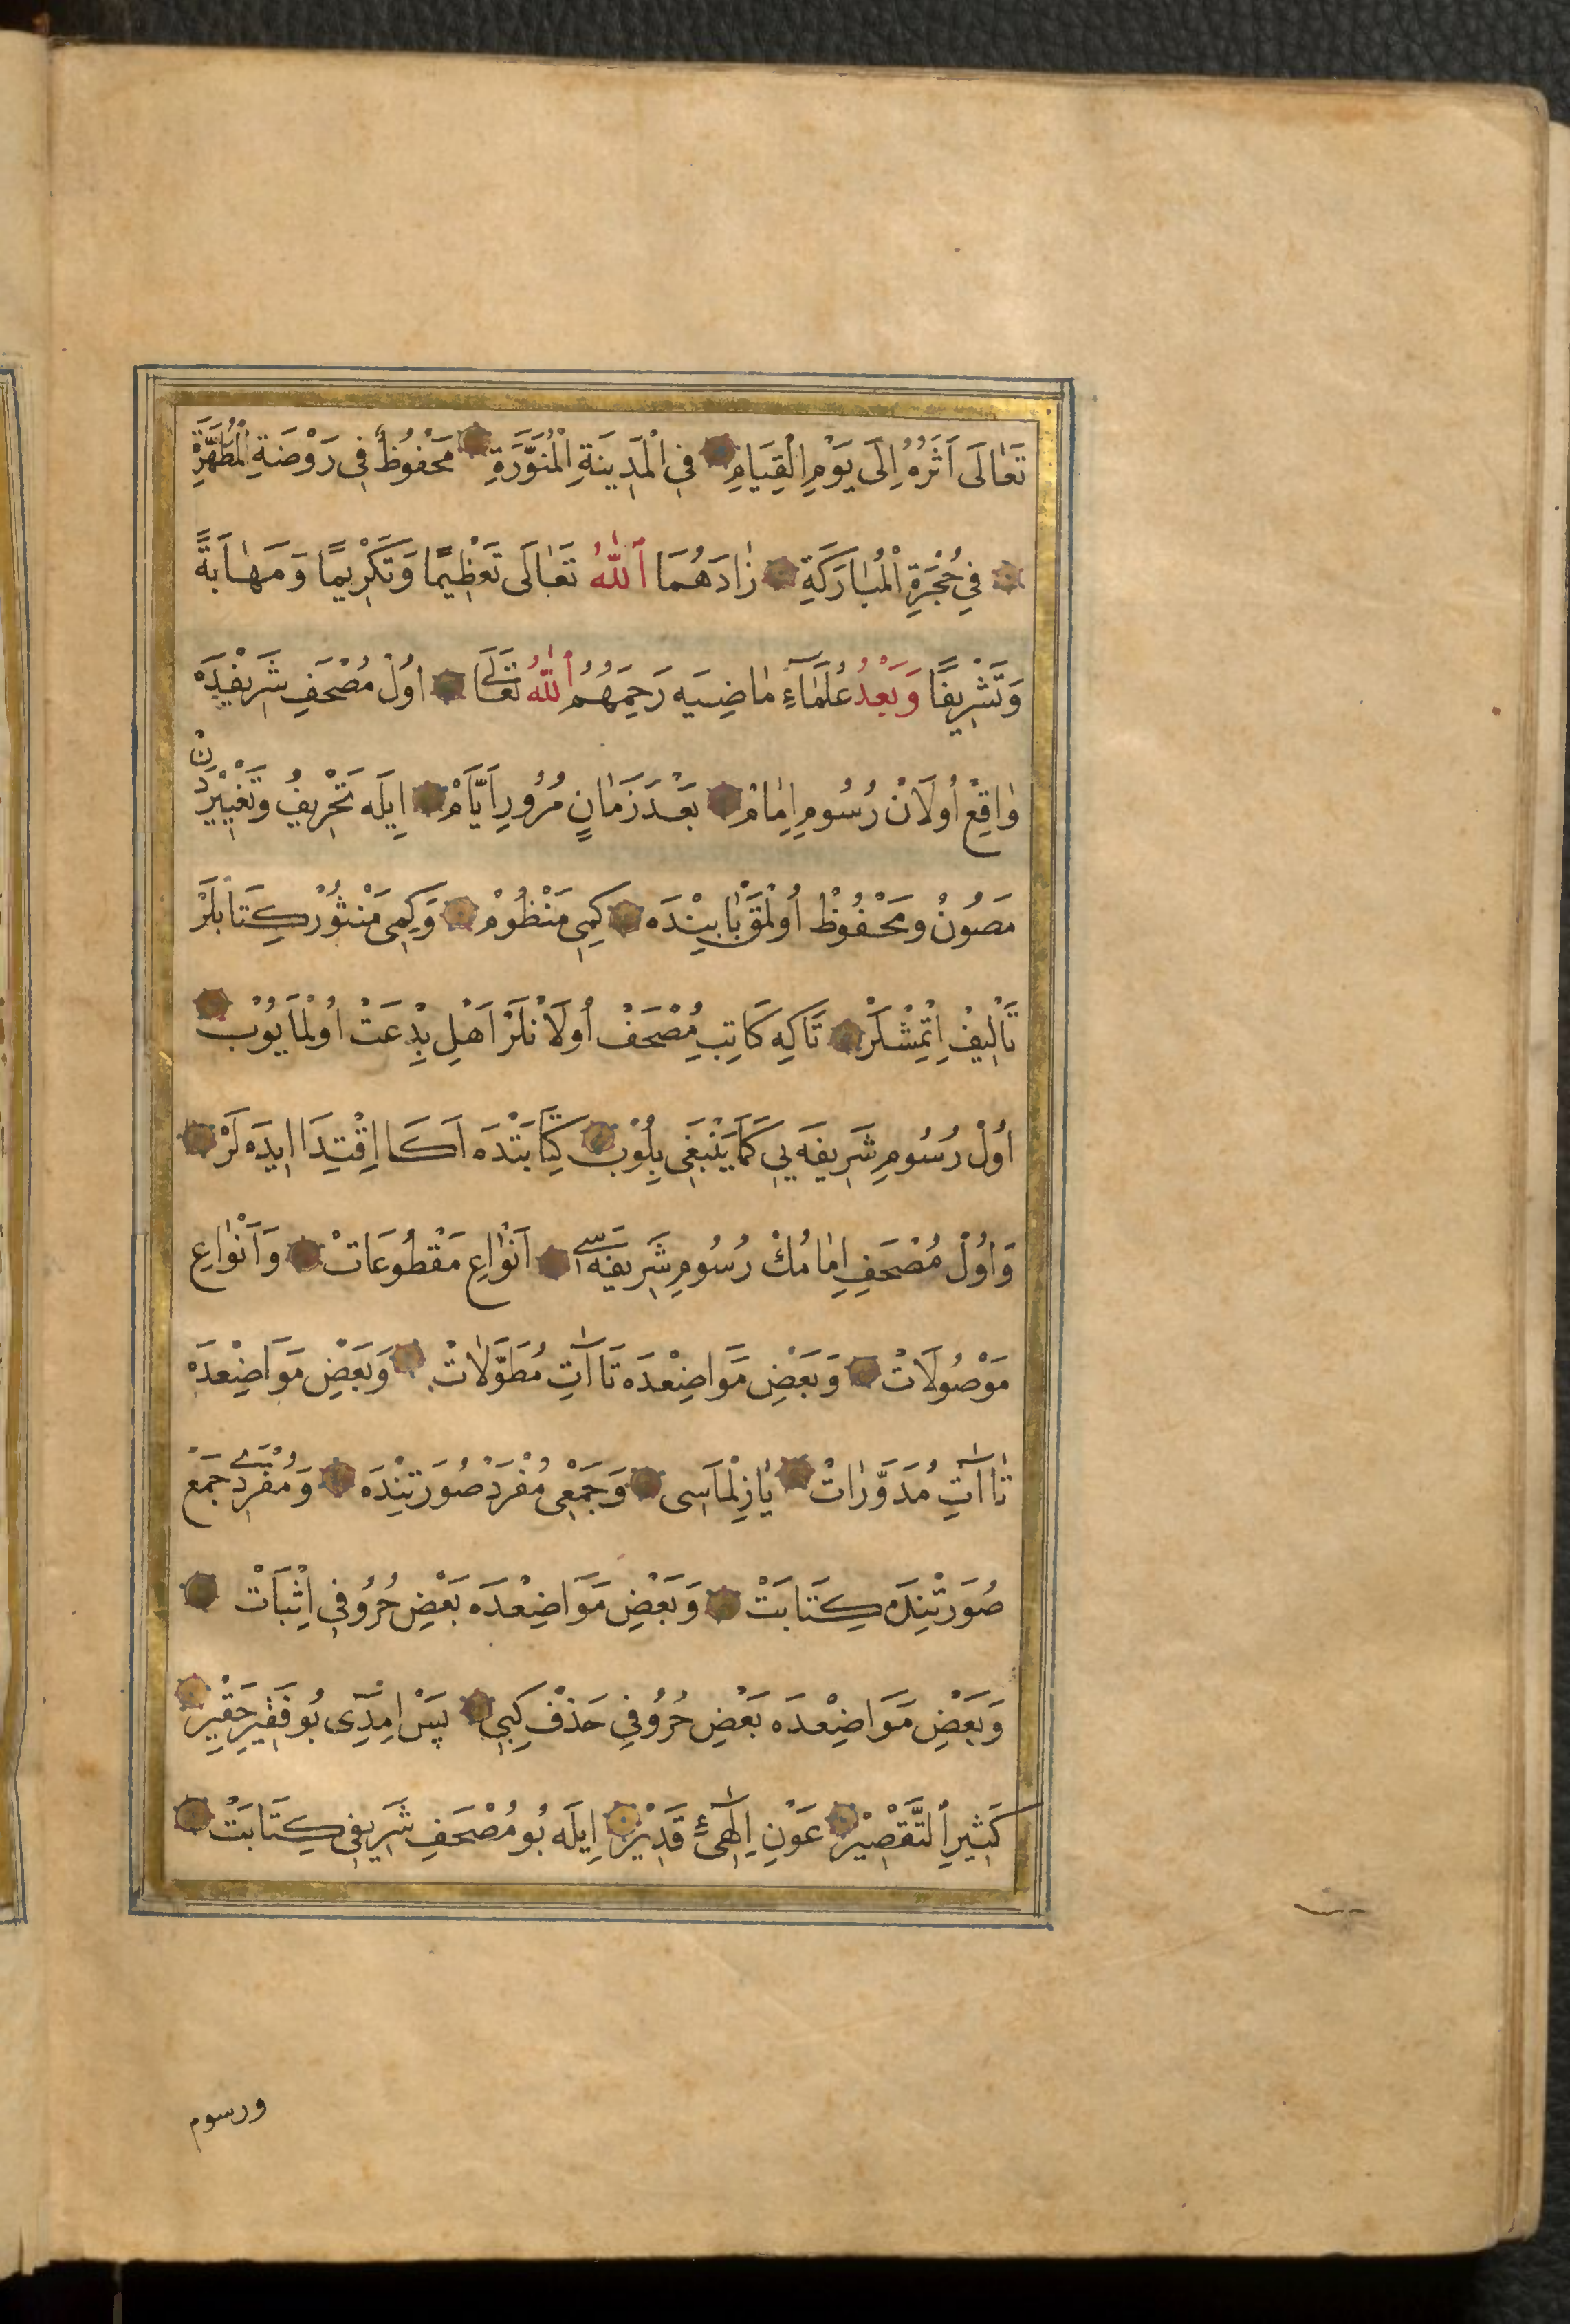 تَعَالَى اَثَرُهُ اِلَى يَوْمِ الْقِيَامِ فِي الْمَدِينَةِ الْمُنَوَّرَةِ مَحْفُوظٌ فِي رَوْضَةِ الْمُطَهَّرَةِ
فِي حُجْرَةِ الْمُبَارَكَةِ زَادَهُمَا ٱللّٰهُ تَعَالَى تَعْظِيمًا وَتَكْرِيمًا وَمَهَابَةً
وَتَشْرِيفًا وَبَعْدُ عُلَمَآءِ مَاضِيَه رَحِمَهُمُ ٱللّٰهُ تَعَالَى اُولْ مُصْحَفِ شَرِيفْدَه
وَاقِعْ اُولَانْ رُسُومِ اِمَامْ بَعْدَ زَمَانٍ مُرُورِ اَيَّامْ اِيلَه تَحْرِيفُ وتَغْيِيرْدَنْ
مَصُونُ ومَحْفُوظْ اُولْمَقْ بَابِينْدَه كِمِى مَنْظُومْ وَكِمِى مَنْثُورْ كِتَابْلَرْ
تَأْلِيفْ اِتْمِشْلَرْ تَاكِه كَاتِبِ مُصْحَفْ اُولَانْلَرْ اَهْلِ بِدْعَتْ اُولْمَايُوبْ
اُولْ رُسُومِ شَرِيفَه يِي كَمَا يَنْبَغِى بِلُوبْ كِتَابَتْدَه اَكَا اِقْتِدَا ايدَه لَرْ
وَاُولْ مُصْحَفِ اِمَامُكْ رُسُومِ شَرِيفَه سى اَنْوَاعِ مَقْطُوعَاتْ وَاَنْوَاعِ
مَوْصُولَاتْ وَبَعْضِ مَوَاضِعْدَه تَاآتِ مُطَوَّلَاتْ وَبَعْضِ مَوَاضِعْدَه
تَاآتِ مُدَوَّرَاتْ يَازِلْمَاسِى وَجَمْعِى مُفْرَدْ صُورَتِنْدَه وَمُفْرَدِى جَمْعْ
صُورَتْنِدَه كِتَابَتْ وَبَعْضِ مَوَاضِعْدَه بَعْضِ حُرُوفِي اِثْبَاتْ
وَبَعْضِ مَوَاضِعْدَه بَعْضِ حُرُوفِي حَذْفْ كِبِي پَسْ اِمْدِى بُو فَقِيرِ حَقِيرْ
كَثِيرِ ٱلتَّقْصِيرْ عَوْنِ اِلٰهِىٔ قَدِيرْ اِيلَه بُو مُصْحَفِ شَرِيفِى كِتَابَتْ
ورسوم